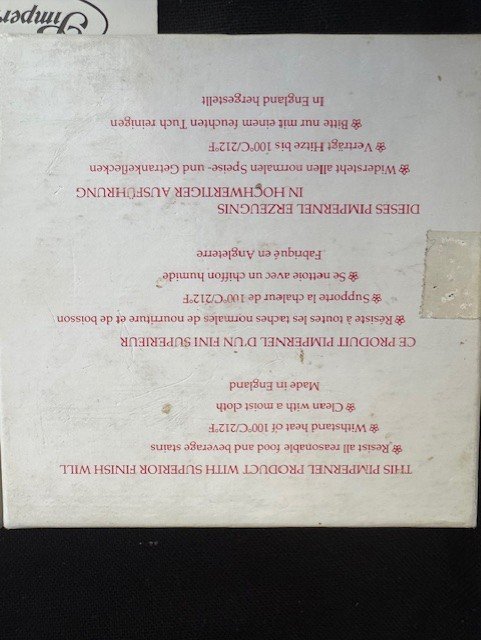 THIS PIMPERNEL PRODUCT WITH SUPERIOR FINISH WILL
Resist all reasonable food and beverage stains
Withstand heat of 100°C/212°F
Clean with a moist cloth
Made in England
CE PRODUIT PIMPERNEL D'UN FINI SUPERIEUR
Résiste à toutes les taches normales de nourriture et de boisson
Supporte la chaleur de 100°C/212°F
Se nettoie avec un chiffon humide
Fabriqué en Angleterre
DIESES PIMPERNEL ERZEUGNIS
IN HOCHWERTIGER AUSFÜHRUNG
Widersteht allen normalen Speise- und Getränkeflecken
Verträgt Hitze bis 100°C/212°F
Bitte nur mit einem feuchten Tuch reinigen
In England hergestellt